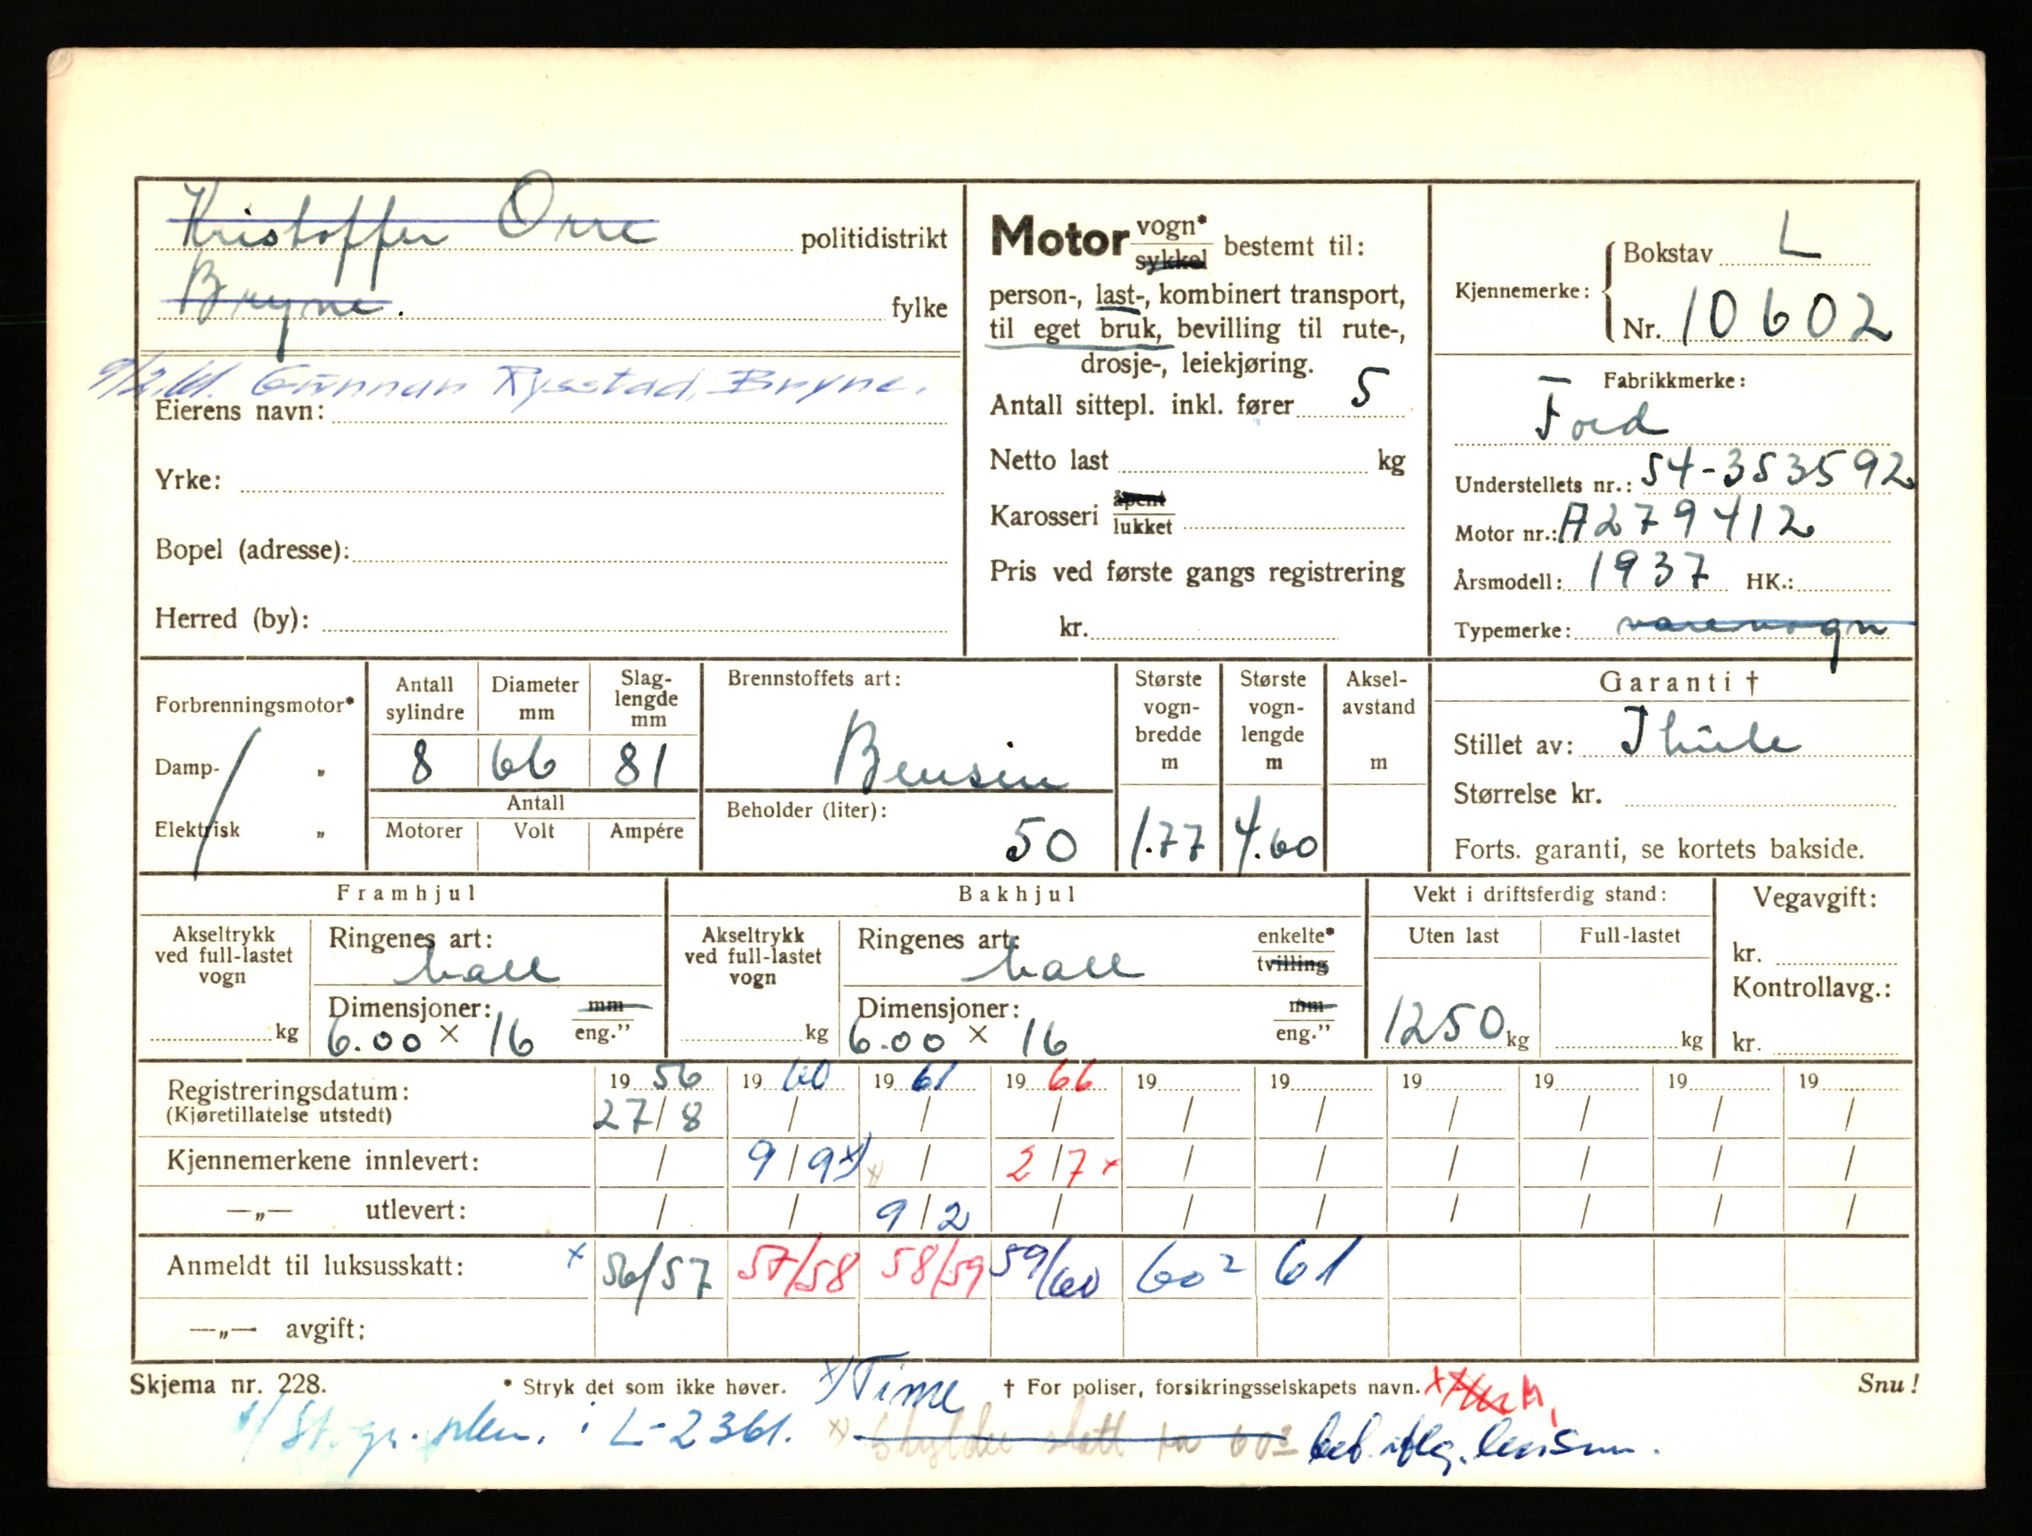 Kristoffer Orre politidistrikt
Bryne. fylke
9/2.61. Gunnar Rysstad, Bryne.
Eierens navn:
Yrke:
Bopel (adresse):
Herred (by):
Motor vogn* sykkel bestemt til:
person-, last-, kombinert transport,
til eget bruk, bevilling til rute-,
drosje-, leiekjøring.
Antall sittepl. inkl. fører 5
Netto last kg
Karosseri åpent lukket
Pris ved første gangs registrering
kr.
Kjennemerke: Bokstav L
Nr. 10602
Fabrikkmerke:
Ford
Understellets nr.: 54-353592
Motor nr.: A279412
Årsmodell: 1937 HK.:
Typemerke: varevogn
Forbrenningsmotor*
Damp- „
Elektrisk „
Antall sylindre 8
Diameter mm 66
Slag-lengde mm 81
Antall
Motorer Volt Ampére
Brennstoffets art:
Bensin
Beholder (liter):
50
Største vogn-bredde m 1.77
Største vogn-lengde m 4.60
Aksel-avstand m
Garanti †
Stillet av: Thule
Størrelse kr.
Forts. garanti, se kortets bakside.
Framhjul
Akseltrykk ved full-lastet vogn kg
Ringenes art:
Dimensjoner: mm eng.”
6.00 × 16
Bakhjul
Akseltrykk ved full-lastet vogn kg
Ringenes art: enkelte* tvilling
Dimensjoner: mm eng.”
6.00 × 16
Vekt i driftsferdig stand:
Uten last Full-lastet
1250 kg kg
Vegavgift:
kr.
Kontrollavg.:
kr.
Registreringsdatum: 19 56 19 60 19 61 19 66 19 19 19 19 19 19
(Kjøretillatelse utstedt) 27/8 / / / / / / / / /
Kjennemerkene innlevert: / 9/9 x) x) / 2/7 x / / / / / /
—„— utlevert: / / 9/2 / / / / / / /
Anmeldt til luksusskatt: x 56/57 57/58 58/59 59/60 60² 61
—„— avgift:
Skjema nr. 228. * Stryk det som ikke høver. x) Time † For poliser, forsikringsselskapets navn. Snu!
i L-2361. x) skatt 60³